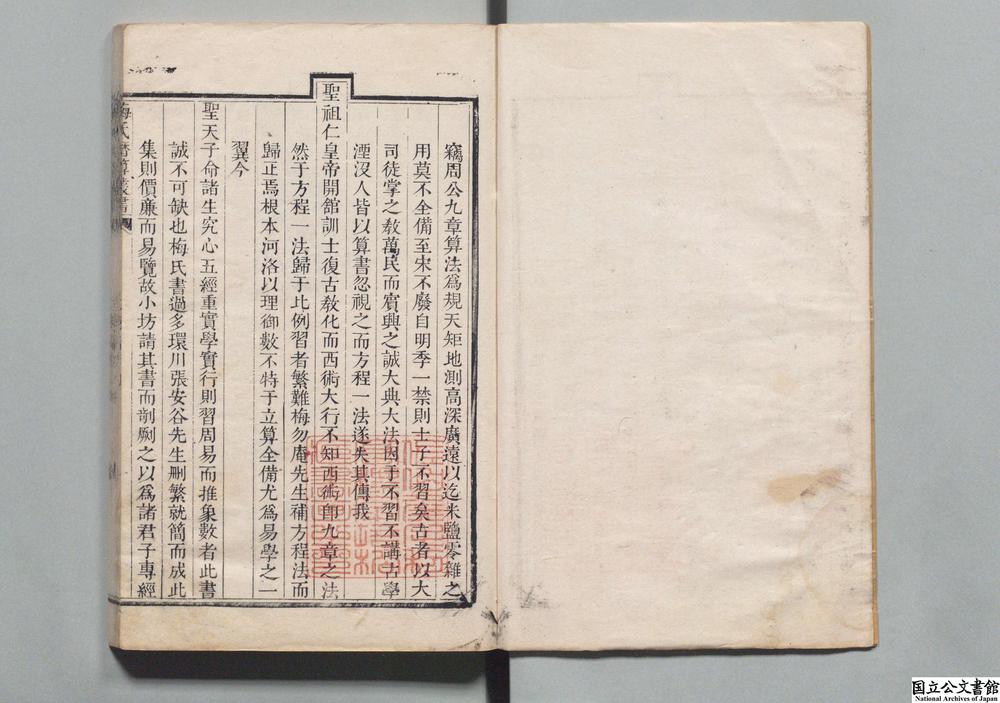 竊周公九章算法爲規天矩地測高深廣遠以迄米鹽零雜之
用莫不全備至宋不廢自明季一禁則士子不習矣古者以大
司徒掌之敎萬民而賓興之誠大典大法因于不習不講古學
湮沒人皆以算書忽視之而方程一法遂失其傳我
聖祖仁皇帝開館訓士復古敎化而西術大行不知西術卽九章之法
然于方程一法歸于比例習者繁難梅勿庵先生補方程法而
歸正焉根本河洛以理御數不特于立算全備尤爲易學之一
翼今
聖天子命諸生究心五經重實學實行則習周易而推象數者此書
誠不可缺也梅氏書過多環川張安谷先生刪繁就簡而成此
集則價廉而易覽故小坊請其書而剞劂之以爲諸君子專經
梅氏曆算叢書
国立公文書館
National Archives of Japan